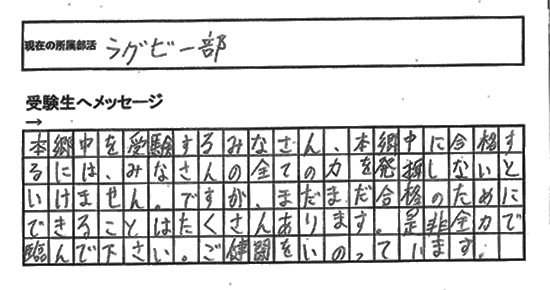 現在の所属部活 ラグビー部
受験生へメッセージ
→
本郷中を受験するみなさん、本郷中に合格す
るには、みなさんの全ての力を発揮しないと
いけません。ですが、まだまだ合格のために
できることはたくさんあります。是非全力で
臨んで下さい。ご健闘をいのっています。